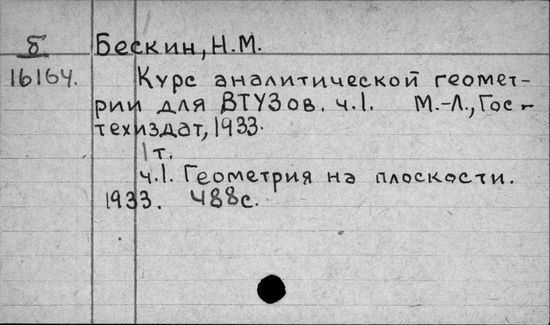 Б Бескин, Н.М.
16164. Курс аналитической геомет-
рии для ВТУЗов. ч.1. М.-Л., Гос-
техиздат, 1933.
1 т.
ч.1. Геометрия на плоскости.
1933. 488с.